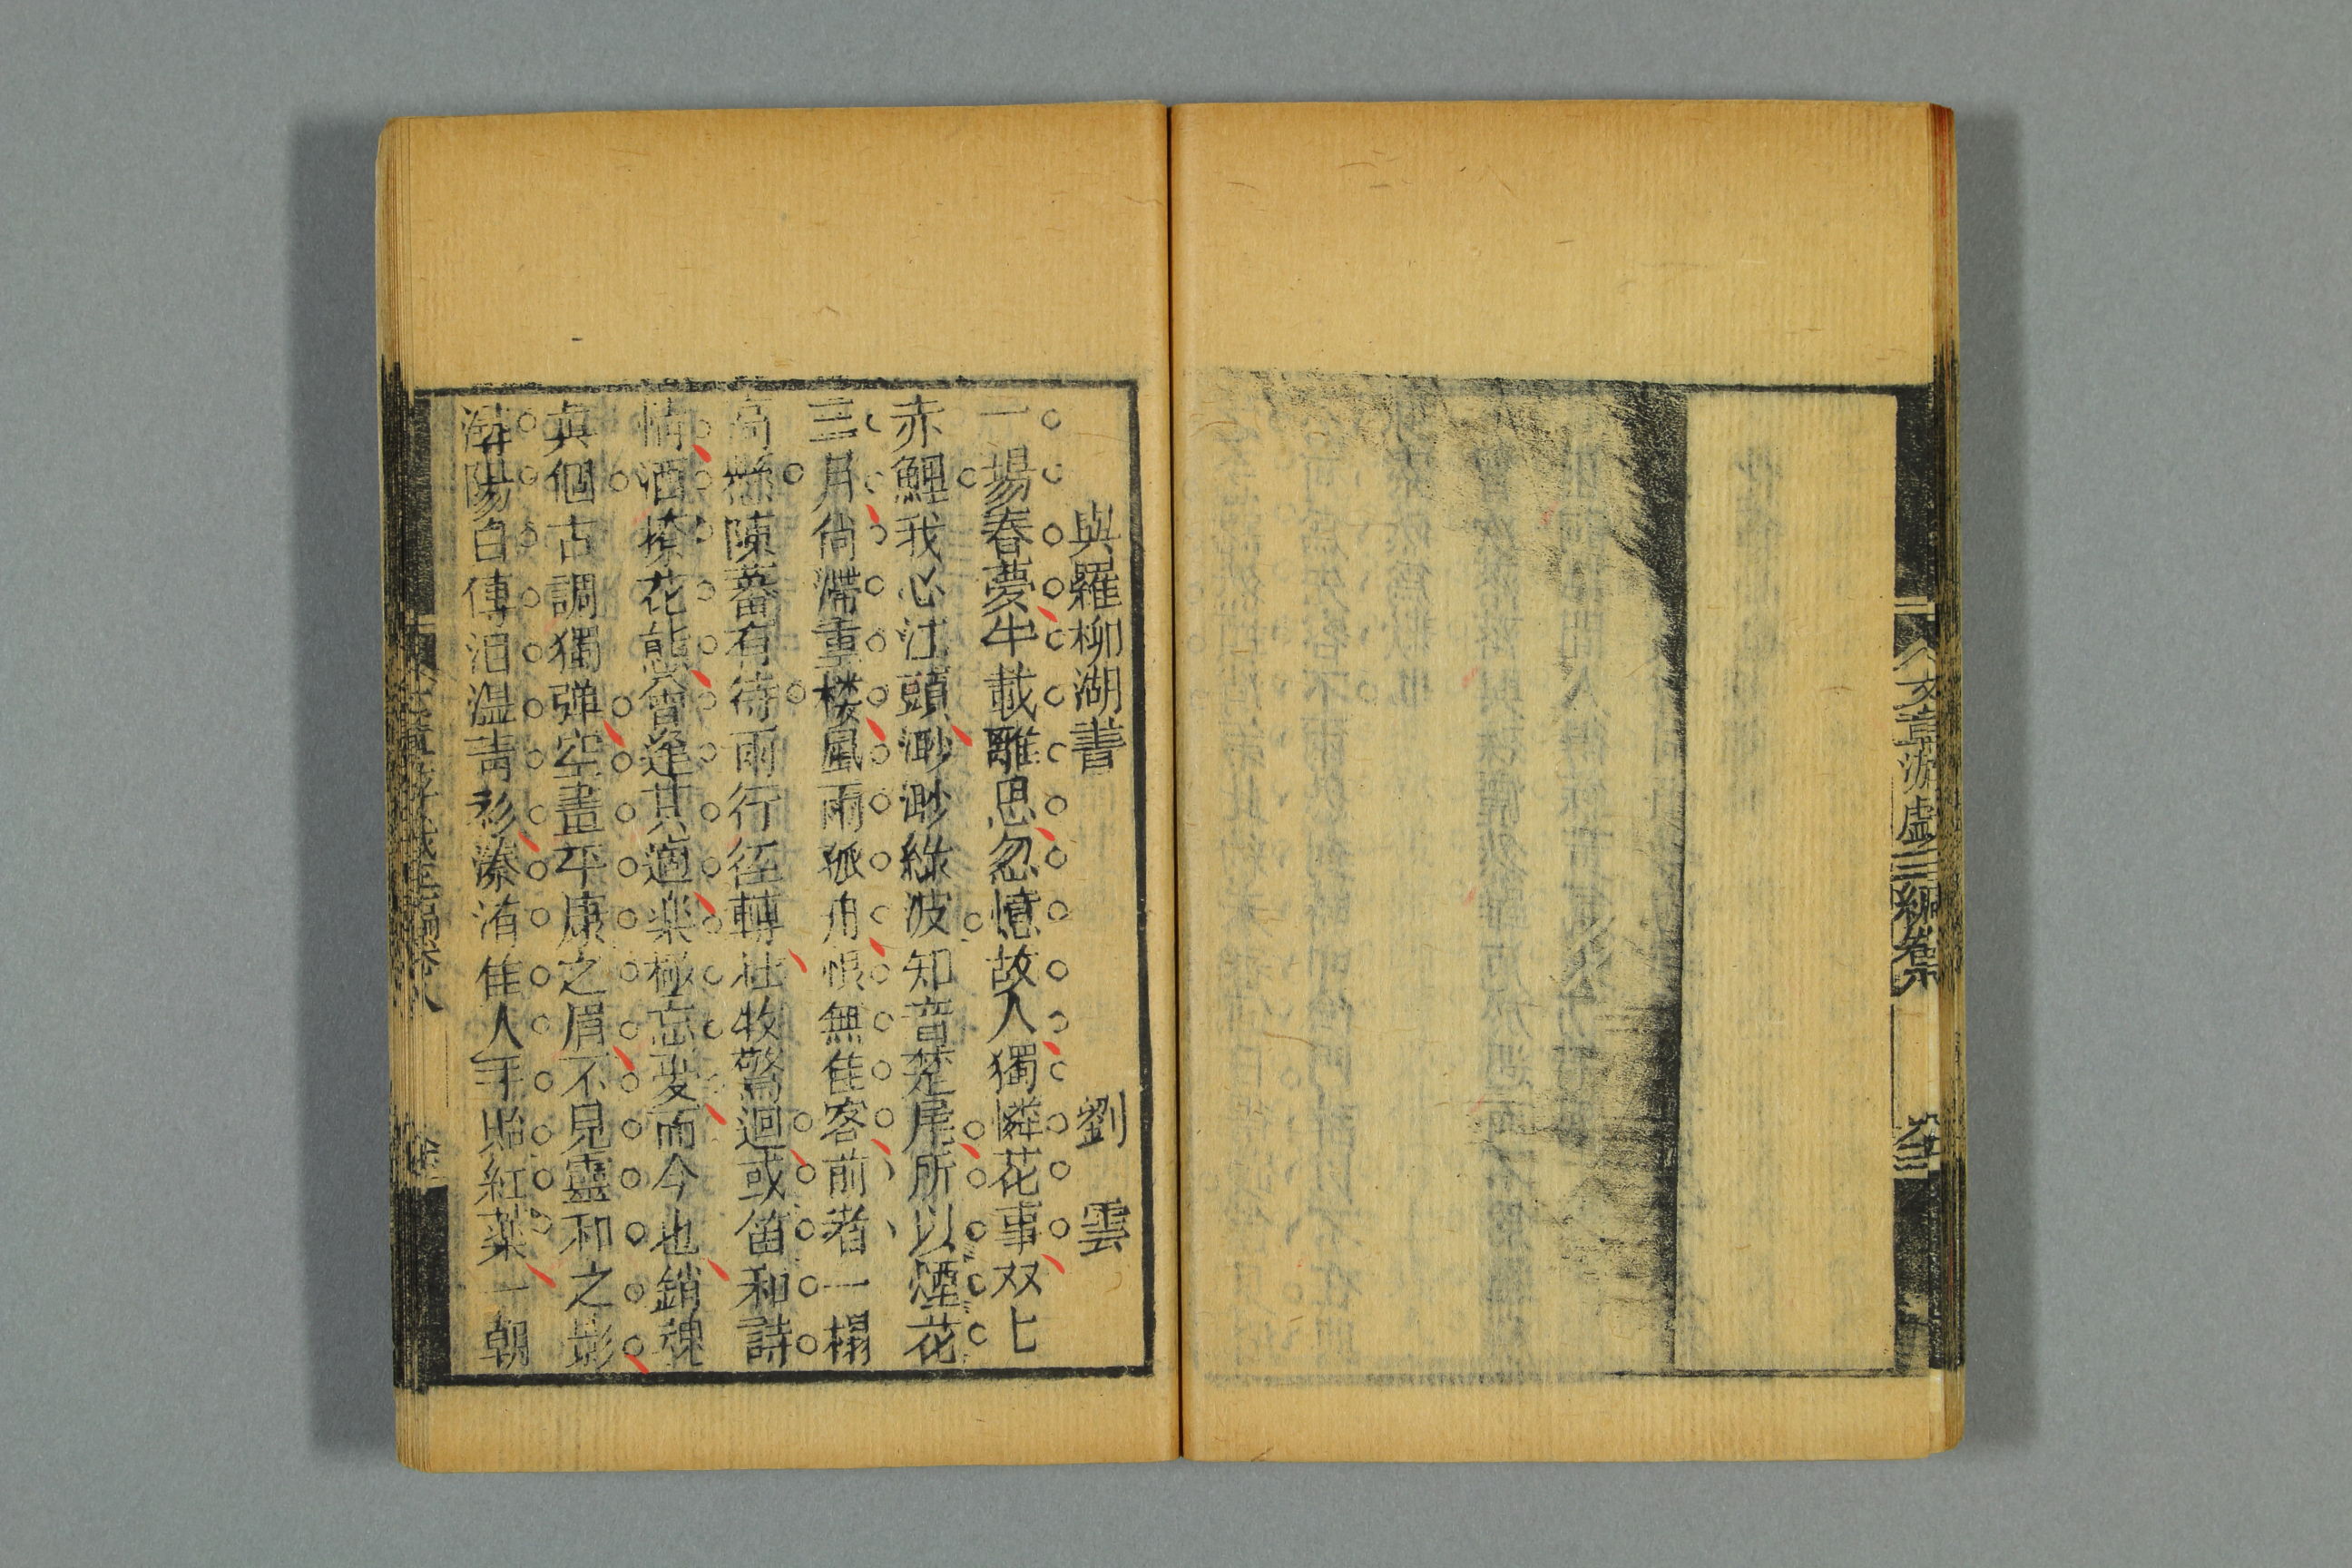 與羅柳湖書 劉雲
一場春夢半載離思忽憶故人獨憐花事双七
赤鯉我心江頭渺渺綠波知音楚尾所以煙花
三月尚滯重楼風雨孤舟恨無佳客前者一榻
高縣陳蕃有待雨行徑轉杜牧驚迴或笛和詩
情酒撩花態會逢其適楽極忘憂而今也銷魂
真個古調獨弹空畫平康之眉不見靈和之影
潯陽自傳泪濕青衫溱洧佳人手貽紅薬一朝
文章游戲三編卷